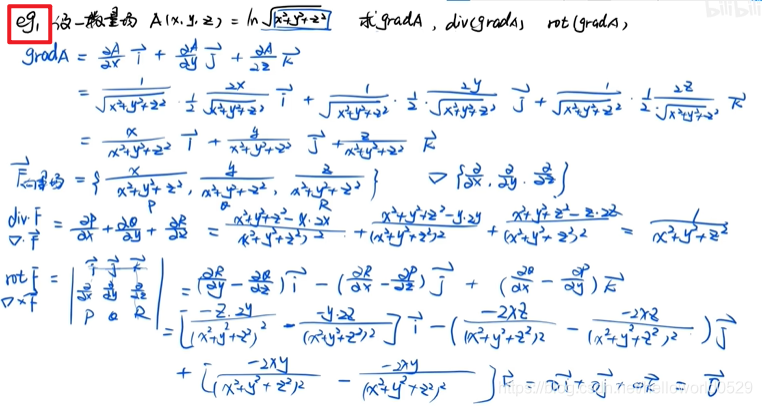 eg. 设一数量场 A(x, y, z) = ln√(x²+y²+z²) 求gradA, div(gradA) rot(gradA)
gradA = ∂A/∂x i⃗ + ∂A/∂y j⃗ + ∂A/∂z k⃗
= 1/√(x²+y²+z²) · 1/2 2x/√(x²+y²+z²) i⃗ + 1/√(x²+y²+z²) · 1/2 · 2y/√(x²+y²+z²) j⃗ + 1/√(x²+y²+z²) · 1/2 2z/√(x²+y²+z²) k⃗
= x/(x²+y²+z²) i⃗ + y/(x²+y²+z²) j⃗ + z/(x²+y²+z²) k⃗
F⃗ 场 = {x/(x²+y²+z²), y/(x²+y²+z²), z/(x²+y²+z²)} ∇ {∂/∂x, ∂/∂y, ∂/∂z}
P Q R
div F⃗ = ∂P/∂x + ∂Q/∂y + ∂R/∂z = (x²+y²+z²-x·2x)/(x²+y²+z²)² + (x²+y²+z²-y·2y)/(x²+y²+z²)² + (x²+y²+z²-z·2z)/(x²+y²+z²)² = 1/(x²+y²+z²)
∇·F⃗
rot F⃗ = | i⃗ j⃗ k⃗ | = (∂R/∂y - ∂Q/∂z) i⃗ - (∂R/∂x - ∂P/∂z) j⃗ + (∂Q/∂x - ∂P/∂y) k⃗
∇×F⃗ | ∂/∂x ∂/∂y ∂/∂z |
| P Q R | = [-z·2y/(x²+y²+z²)² - -y·2z/(x²+y²+z²)²] i⃗ - (-2xz/(x²+y²+z²)² - -2xz/(x²+y²+z²)²) j⃗
+ [-2xy/(x²+y²+z²)² - -2xy/(x²+y²+z²)²] k⃗ = 0⃗
bilibili